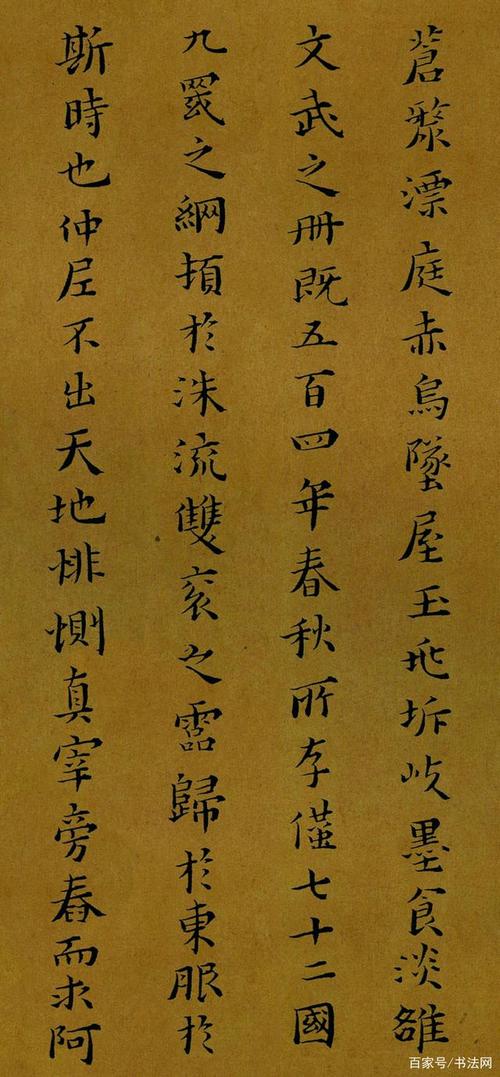 蒼漦漂庭赤烏墜屋玉兆坼岐墨食淡雒
文武之冊既五百四年春秋所存僅七十二國
九罭之網頓於洙流雙亥之霝歸於東服於
斯時也仲𡰥不出天地悱惻真宰旁春而求阿
百家号/书法网